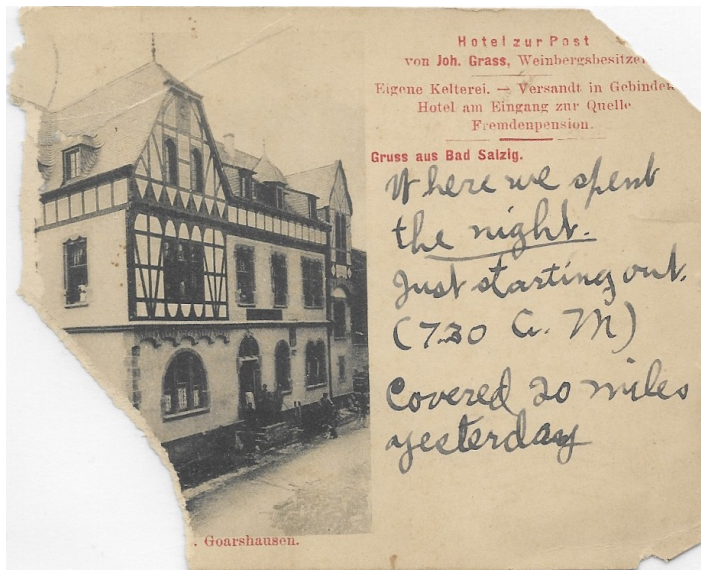 Hotel zur Post
von Joh. Grass, Weinbergsbesitze
Eigene Kelterei. — Versandt in Gebinden
Hotel am Eingang zur Quelle
Fremdenpension.
Gruss aus Bad Salzig.
Where we spent
the night.
Just starting out.
(7.30 A. M)
Covered 20 miles
yesterday
. Goarshausen.